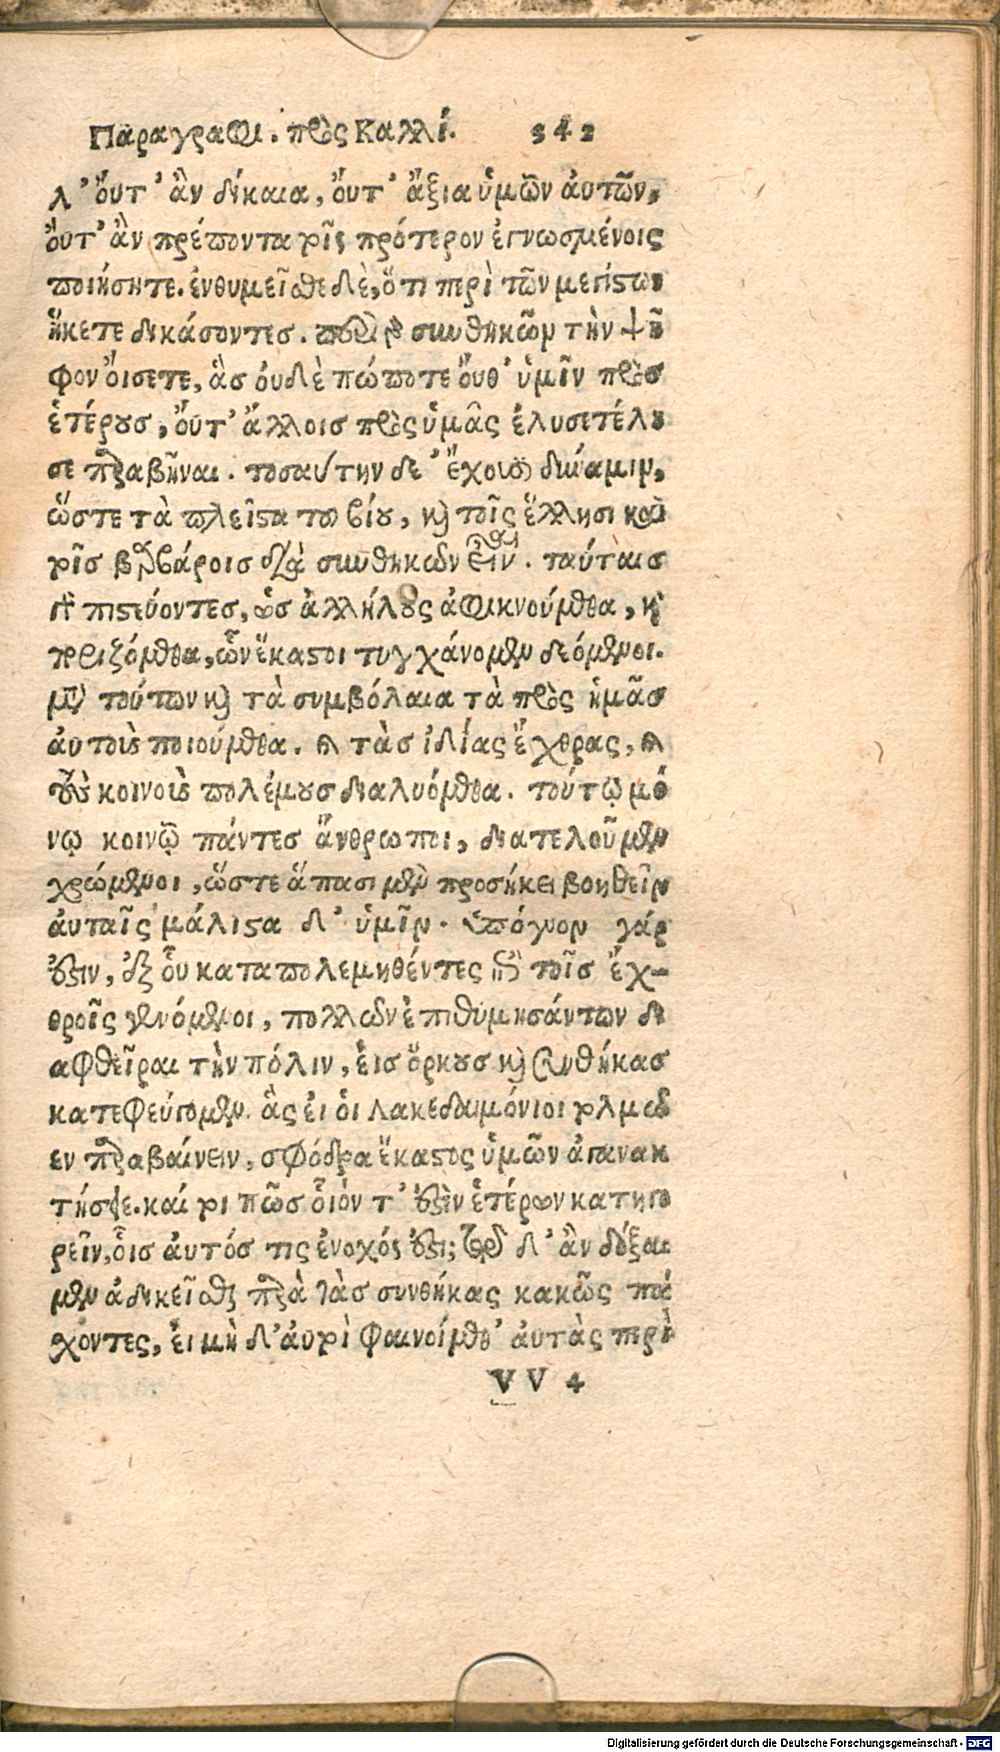 Παραγραφι. πρὸς Καλλί. 342
λ' ὄυτ' ἂν δίκαια, ὄυτ' ἄξια ὑμῶν ἀυτῶν,
ὄυτ' ἂν πρέποντα τοῖς πρότερον ἐγνωσμένοις
ποιήσητε. ἐνθυμεῖσθε δὲ, ὅτι περὶ τῶν μεγίστων
ἥκετε δικάσοντες. περὶ γὰρ συνθηκῶν τὴν ψῆ
φον ὄισετε, ἃς ὀυδὲ πώποτε ὄυθ' ὑμῖν πρὸς
ἑτέρους, ὄυτ' ἄλλοις πρὸς ὑμᾶς ἐλυσετέλη
σε παραβῆναι. τοσαύτην δε' ἔχουσι δύναμιν,
ὥστε τὰ πλεῖστα του βίου, καὶ τοῖς ἕλλησι καὶ
τοῖς βαρβάροις διὰ συνθηκῶν εἶναι. ταύταις
γὰρ πιστεύοντες, ὡς ἀλλήλους ἀφικνούμεθα, καὶ
ποριζόμεθα, ὧν ἕκαστοι τυγχάνομεν δεόμενοι.
μετὰ τούτων καὶ τὰ συμβόλαια τὰ πρὸς ἡμᾶς
ἀυτοὺς ποιούμεθα. καὶ τὰς ἰδίας ἔχθρας, καὶ
τοὺς κοινοὺς πολέμους διαλυόμεθα. τούτῳ μό
νῳ κοινῷ πάντες ἄνθρωποι, διατελοῦμεν
χρώμενοι, ὥστε ἅπασι μὲν προσήκει βοηθεῖν
ἀυταῖς μάλιστα δ' ὑμῖν. ὑπόγυον γάρ
ἐστιν, ἐξ ὗ καταπολεμηθέντες ἐπὶ τοῖς ἔχ-
θροῖς γενόμενοι, πολλῶν ἐπιθυμησάντων δι
αφθεῖραι τὴν πόλιν, ἐις ὅρκους καὶ συνθήκας
κατεφεύγομεν. ἃς ἐι ὁι Λακεδαιμόνιοι τολμῷ
εν παραβαίνειν, σφόδρα ἕκαστος ὑμῶν ἀγανακ
τήσειε. καί τοι πῶς ὄιόν τ' ἐστὶν ἑτέρων κατηγο
ρεῖν, ὄις ἀυτός τις ἔνοχός ἐστι; τῷ δ' ἂν δόξαι
μεν ἀδικεῖσθαι παρὰ τὰς συνθήκας κακῶς πά
χοντες, ἐι μὴ δ' ἀυτοὶ φαινοίμεθ' ἀυτὰς περὶ
VV 4
Digitalisierung gefördert durch die Deutsche Forschungsgemeinschaft - DFG